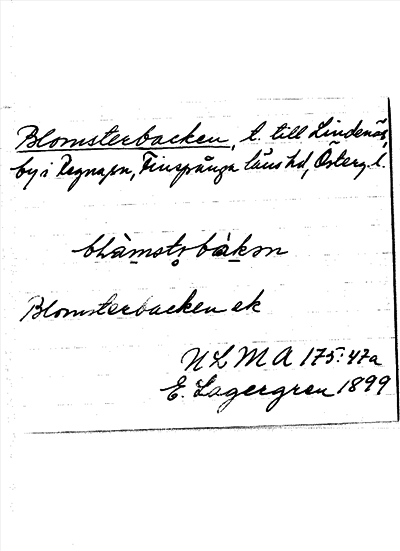 Blomsterbacken, t. till Lindenäs,
by i Regna sn, Finspånga läns hd, Österg. l.
blåmstɚbàkən
Blomsterbacken ek
NLMA 175:47a
E. Lagergren 1899